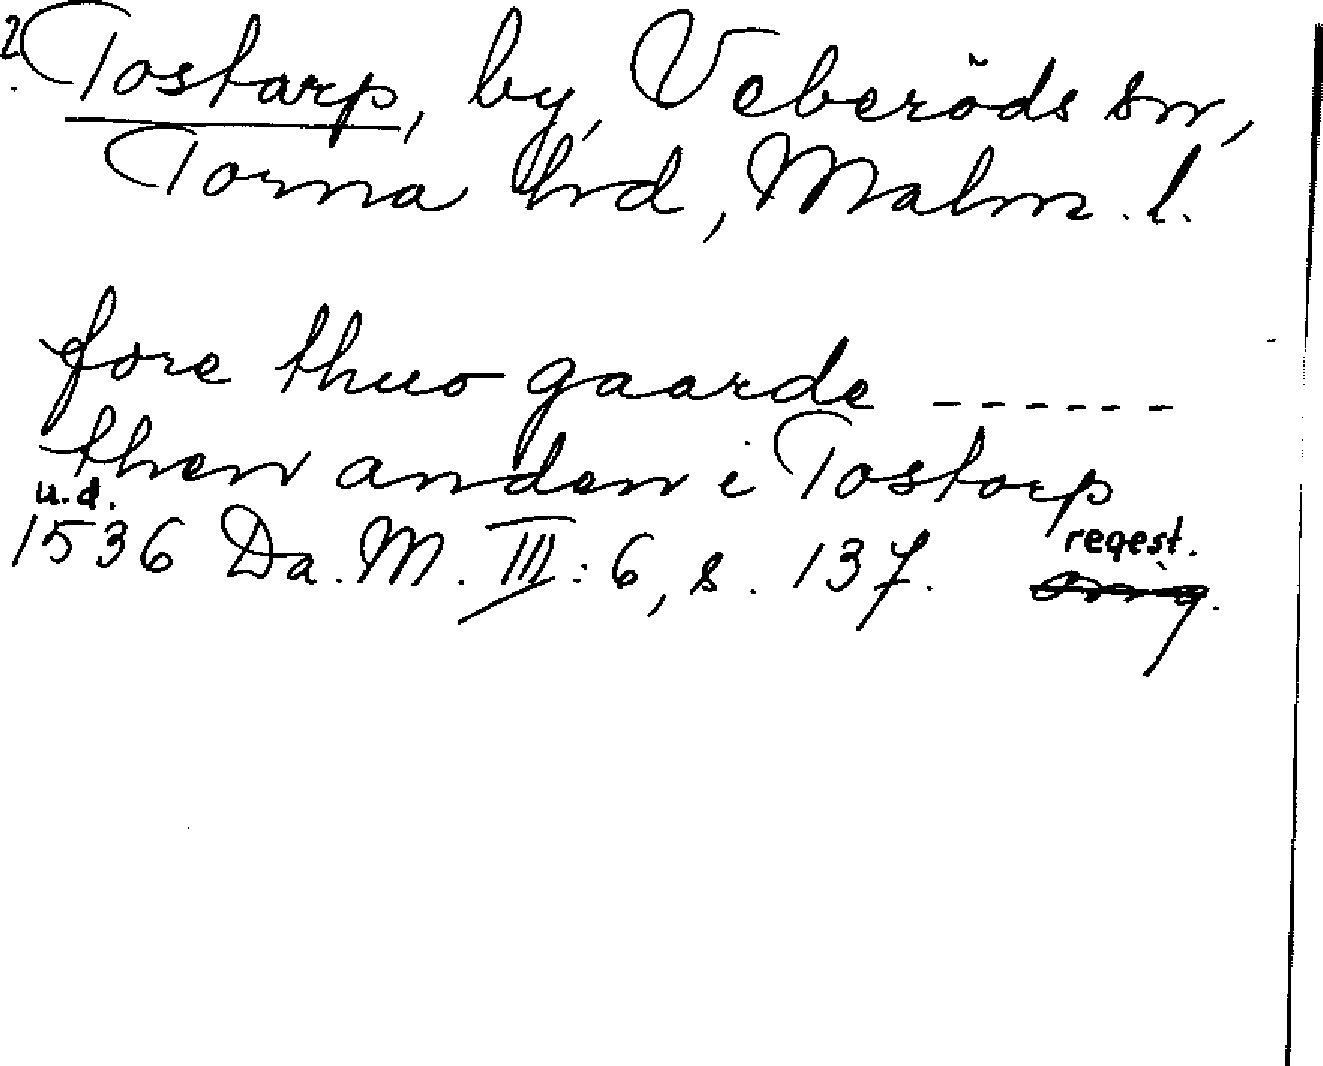 ? Tostarp, by, Veberöds sn,
Torna hd, Malm. l.
fore thuo gaarde ------
then anden i Tostorp
u.d.
1536 Da. M. III: 6, s. 137. regest.